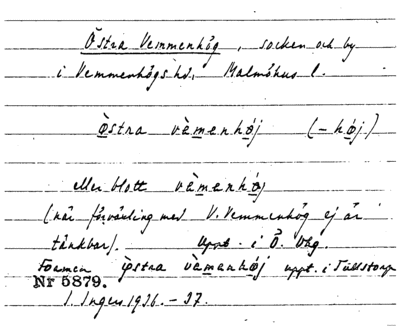 Östra Vemmenhög, socken och by
i Vemmenhögs hd, Malmöhus l.
östra vàmenhǿj (–høj)
eller blott vàmenhǿj
(när förväxling med V. Vemmenhög ej är
tänkbar). Uppt. i Ö. Vhg.
Formen östra vàmenhǿj uppt. i Tullstorp
Nr 5879.
I. Ingers 1926.–27.